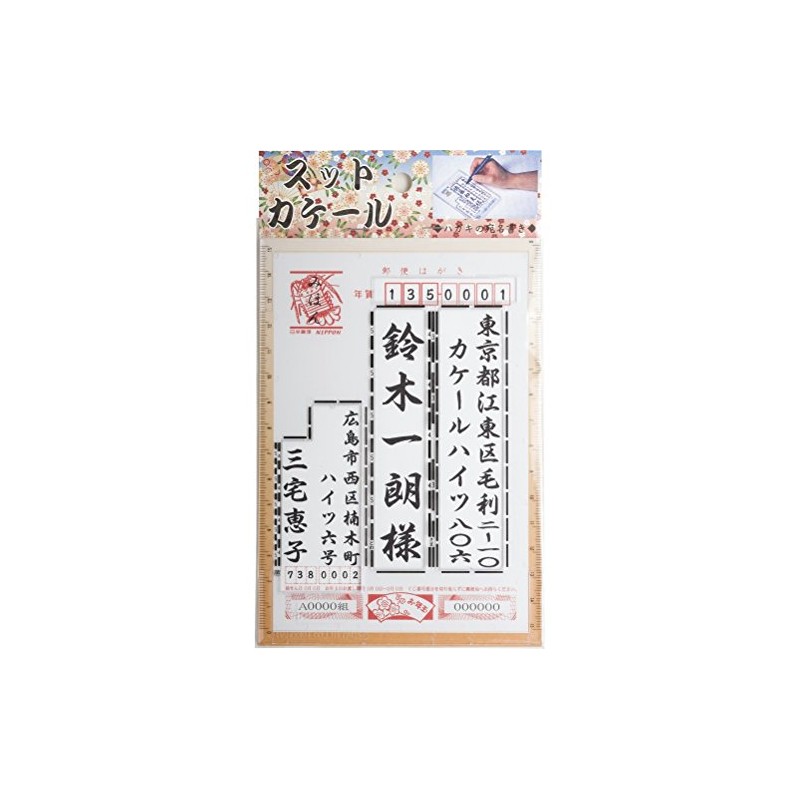 スット
カケール
◆ハガキの宛名書き◆
郵便はがき
年賀
1350001
みほん
日本郵便 NIPPON
東京都江東区毛利二-一〇
カケールハイツ八〇六
鈴木一朗様
広島市西区楠木町
ハイツ六号
三宅恵子
7380002
A0000組
お年玉
000000